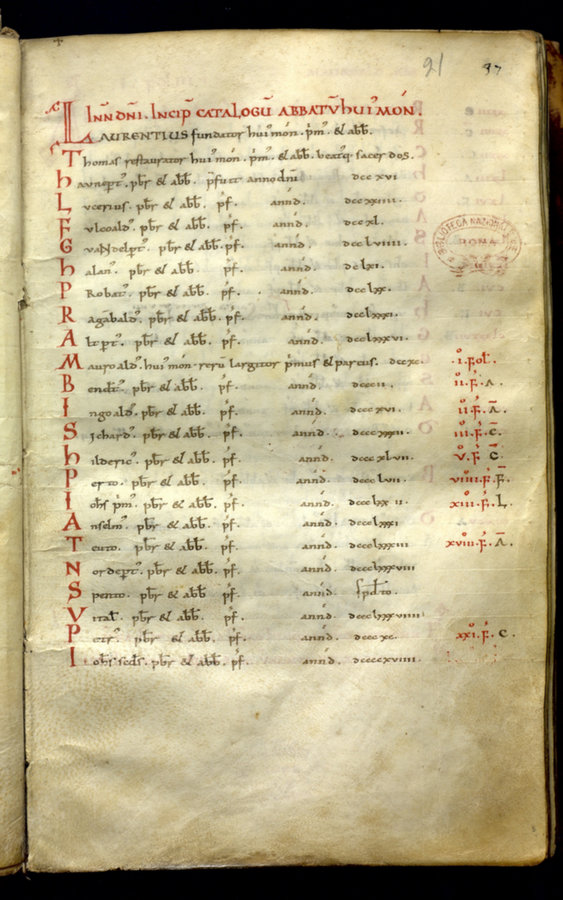 91 97
INN DN̄I. INCIP̄ CATALOGŪ ABBATŪ HUI' MON̄.
LAURENTIUS fundator hui' món. p̊m. & abb̄.
Thomas restaurator hui' món. p̊m. & abb̄. beatq; sacerdos.
Haunept'. pb̄r & abb̄. p̄fuit anno dn̄i dccxvi
Lucerius. pb̄r & abb̄. p̊f. ann̄ d̄. dccxxiiii.
Fulcoald'. pb̄r & abb̄. p̊f. ann̄ d̄. dccxl.
GuaNdelpt'. pb̄r & abb̄. p̊f. ann̄ d̄. dcclviiii.
halan'. pb̄r & abb̄. p̊f. ann̄ d̄. dclxi.
PRobat'. pb̄r & abb̄. p̊f. ann̄ d̄. dcclxx.
Ragabald'. pb̄r & abb̄. p̊f. ann̄ d̄. dcclxxxi.
Altpt'. pb̄r & abb̄. p̊f. ann̄ d̄. dcclxxxvi.
Mauroald'. hui' món. rerū largitor p̊mus & parcus. dccxc. .i.F.ol.
Bendict'. pb̄r & abb̄. p̊f. ann̄ d̄. dcccii. ii.F.A.
Ingoald'. pb̄r & abb̄. p̊f. ann̄ d̄. dcccxvi. ii.F.Ā.
Sichard'. pb̄r & abb̄. p̊f. ann̄ d̄. dcccxxxii. iii.F.C̄.
hilderic'. pb̄r & abb̄. p̊f. ann̄ d̄. dcccxlvii. v.F.C̄
Perto. pb̄r & abb̄. p̊f. ann̄ d̄. dccclvii. viiii.F.F̄.
Iohs p̊m'. pb̄r & abb̄. p̊f. ann̄ d̄. dccclxxii. xiii.F.L.
Anselm'. pb̄r & abb̄. p̊f. ann̄ d̄. dccclxxxi
Teuto. pb̄r & abb̄. p̊f. ann̄ d̄. dccclxxxiii xviii.F.Ā.
Nordept'. pb̄r & abb̄. p̊f. ann̄ d̄. dccclxxxviii
Spento. pb̄r & abb̄. p̊f. ann̄ d̄. sp̄dto.
Vital'. pb̄r & abb̄. p̊f. ann̄ d̄. dccclxxxviiii.
Petr'. pb̄r & abb̄. p̊f. ann̄ d̄. dcccxc. xxi.F.C.
Iohs scd̄s. pb̄r & abb̄. p̊f. ann̄ d̄. dccccxviiii.
BIBLIOTECA NAZIONALE
ROMA